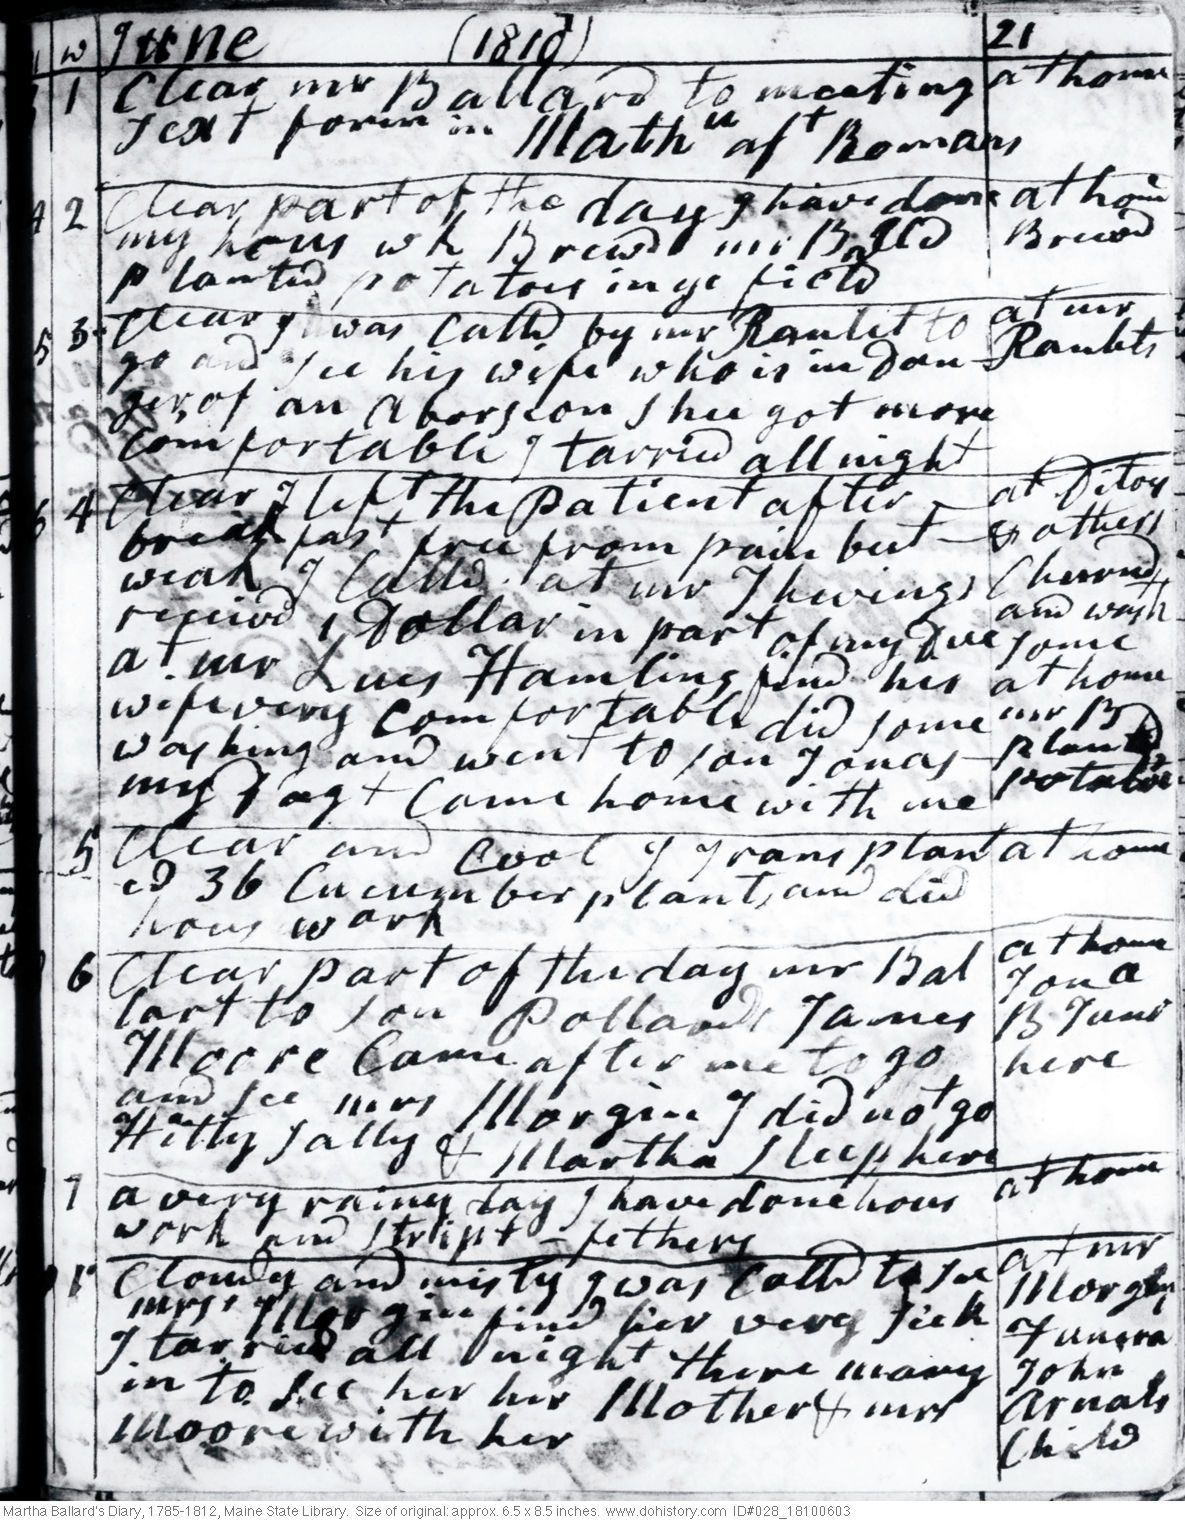 w June (1810) 21
1 Clear mr Ballard to meeting at home
Text foren in Math'w aft Romans
4 2 Clear part of the day I have done at hom
my hous wk Brewd mr Balld Brewd
planted potatoes in ye field
5 3 Clear I was Calld by mr Ranlet to at mr
go and see his wife who is in dan Ranlets
ger of an Aborsion shee got more
Comfortable I tarried all night
6 4 Clear I left the Patient after at Ditoy
breakfast free from pain but & others
weak I Calld at mr Thwings Churnd
receivd 1 Dollar in part of my Due and wash
at mr Lues Hamling find his some
wife very Comfortable did some at home
washing and went to son Jonas mr B
my Pagt Came home with me plantd
potatoe
5 Clear and Cool I Transplant at home
ed 36 Cucumber plants and did
hous work
6 Clear part of the day mr Bal at home
lart to son Pollards James Jona
Moore Came after me to go B Juns
and see mrs Morgin I did not go here
Hitty Sally & Martha Sleep here
7 a very rainey day I have done hous at home
work and stript fethers
1 Cloudy and misty I was Calld to see at mr
mrs Morgin find her very sick Morgin
I tarried all night there many Funera
in to see her her Mother & mrs John
Moore with her Arnals
Child
Martha Ballard's Diary, 1785-1812, Maine State Library. Size of original: approx. 6.5 x 8.5 inches. www.dohistory.com ID#028_18100603